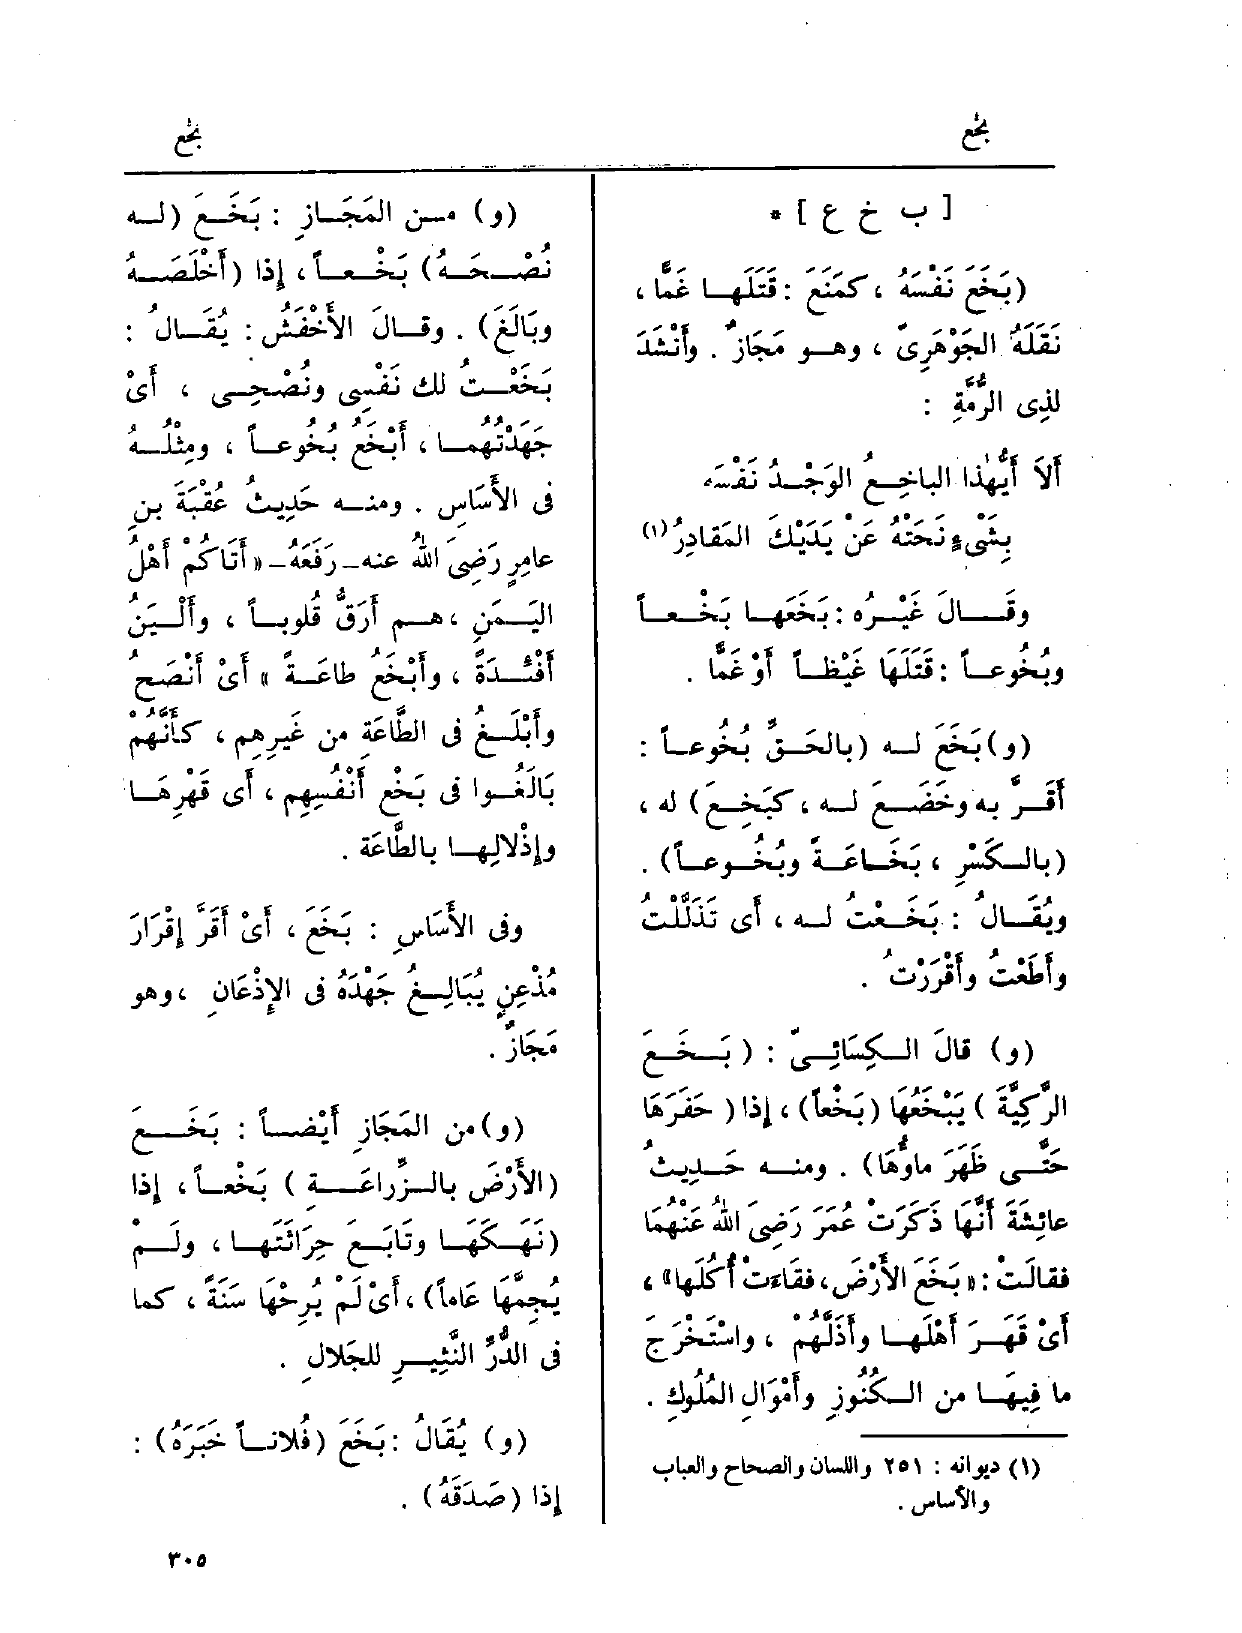 بخع
بخع
[ ب خ ع ] *
(بَخَع نَفْسَهُ ، كمَنَعَ : قَتَلها غَمًّا ،
نَقَلَهُ الجَوْهَرِىّ ، وهو مَجَازٌ . وأَنْشَدَ
لِذِى الرُّمَّةِ :
أَلاَ أَيُّهٰذا الباخِعُ الوَجْدُ نَفْسَه
بِشَىْءٍ نَحَتْهُ عَنْ يَدَيْكَ المَقادِرُ (١)
وقَالَ غَيْرُه : بَخَعَها بَخْعاً
وبُخُوعاً : قَتَلَهَا غَيْظاً أَوْ غَمًّا .
(و) بَخَعَ له (بالحَقِّ بُخُوعاً :
أَقَرَّ به وخَضَعَ له ، كبَخِعَ) له ،
(بالكَسْرِ ، بَخَاعَةً وبُخُوعاً) .
ويُقَالُ : بَخَعْتُ له ، أَى تَذَلَّلْتُ
وأَطَعْتُ وأَقْرَرْتُ .
(و) قالَ الكِسَائِىّ : (بَخَعَ
الرَّكِيَّةَ ) يَبْخَعُهَا (بَخْعاً) ، إِذا (حَفَرَهَا
حَتَّى ظَهَرَ ماؤُهَا) . ومنه حَدِيثُ
عائِشَةَ أَنَّهَا ذَكَرَتْ عُمَرَ رَضِىَ اللهُ عَنْهُمَا
فقالَتْ : « بَخَعَ الأَرْضَ ، فقَاءَتْ أُكُلَها» ،
أَىْ قَهَرَ أَهْلَها وأَذَلَّهُمْ ، واسْتَخْرَجَ
ما فِيهَا من الكُنُوزِ وأَمْوَالِ المُلُوكِ .
(١) ديوانه : ٢٥١ واللسان والصحاح والعباب
والأساس .
(و) من المَجَازِ : بَخَعَ (له
نُصْحَهُ) بَخْعاً ، إِذا (أَخْلَصَهُ
وبَالَغَ) . وقالَ الأَخْفَشُ : يُقَالُ :
بَخَعْتُ لك نَفْسِى ونُصْحِى ، أَىْ
جَهَدْتُهُما ، أَبْخَعُ بُخُوعاً ، ومِثْلُهُ
فى الأَسَاسِ . ومنه حَدِيثُ عُقْبَةَ بنِ
عامِرٍ رَضِىَ اللهُ عنه - رَفَعَهُ - « أَتَاكُمْ أَهْلُ
اليَمَنِ ، هم أَرَقُّ قُلُوباً ، وأَلْيَنُ
أَفْئِدَةً ، وأَبْخَعُ طاعَةً » أَىْ أَنْصَحُ
وأَبْلَغُ فى الطَّاعَةِ من غَيرِهِم ، كأَنَّهُمْ
بَالَغُوا فى بَخْعِ أَنْفُسِهِم ، أَى قَهْرِهَا
وإِذْلالِها بالطَّاعَة .
وفى الأَسَاسِ : بَخَعَ ، أَىْ أَقَرَّ إِقْرَارَ
مُذْعِنٍ يُبَالِغُ جَهْدَهُ فى الإِذْعَانِ ، وهو
مَجَازٌ .
(و) من المَجَازِ أَيْضاً : بَخَعَ
(الأَرْضَ بالزِّرَاعَةِ ) بَخْعاً ، إِذا
(نَهَكَهَا وتَابَعَ حِرَاثَتَها ، ولَمْ
يُجِمَّهَا عَاماً) ، أَىْ لَمْ يُرِحْهَا سَنَةً ، كما
فى الدُّرِّ النَّثِيرِ للجَلالِ .
(و) يُقَالُ : بَخَعَ (فُلاناً خَبَرَهُ) :
إِذا (صَدَقَهُ) .
٣٠٥